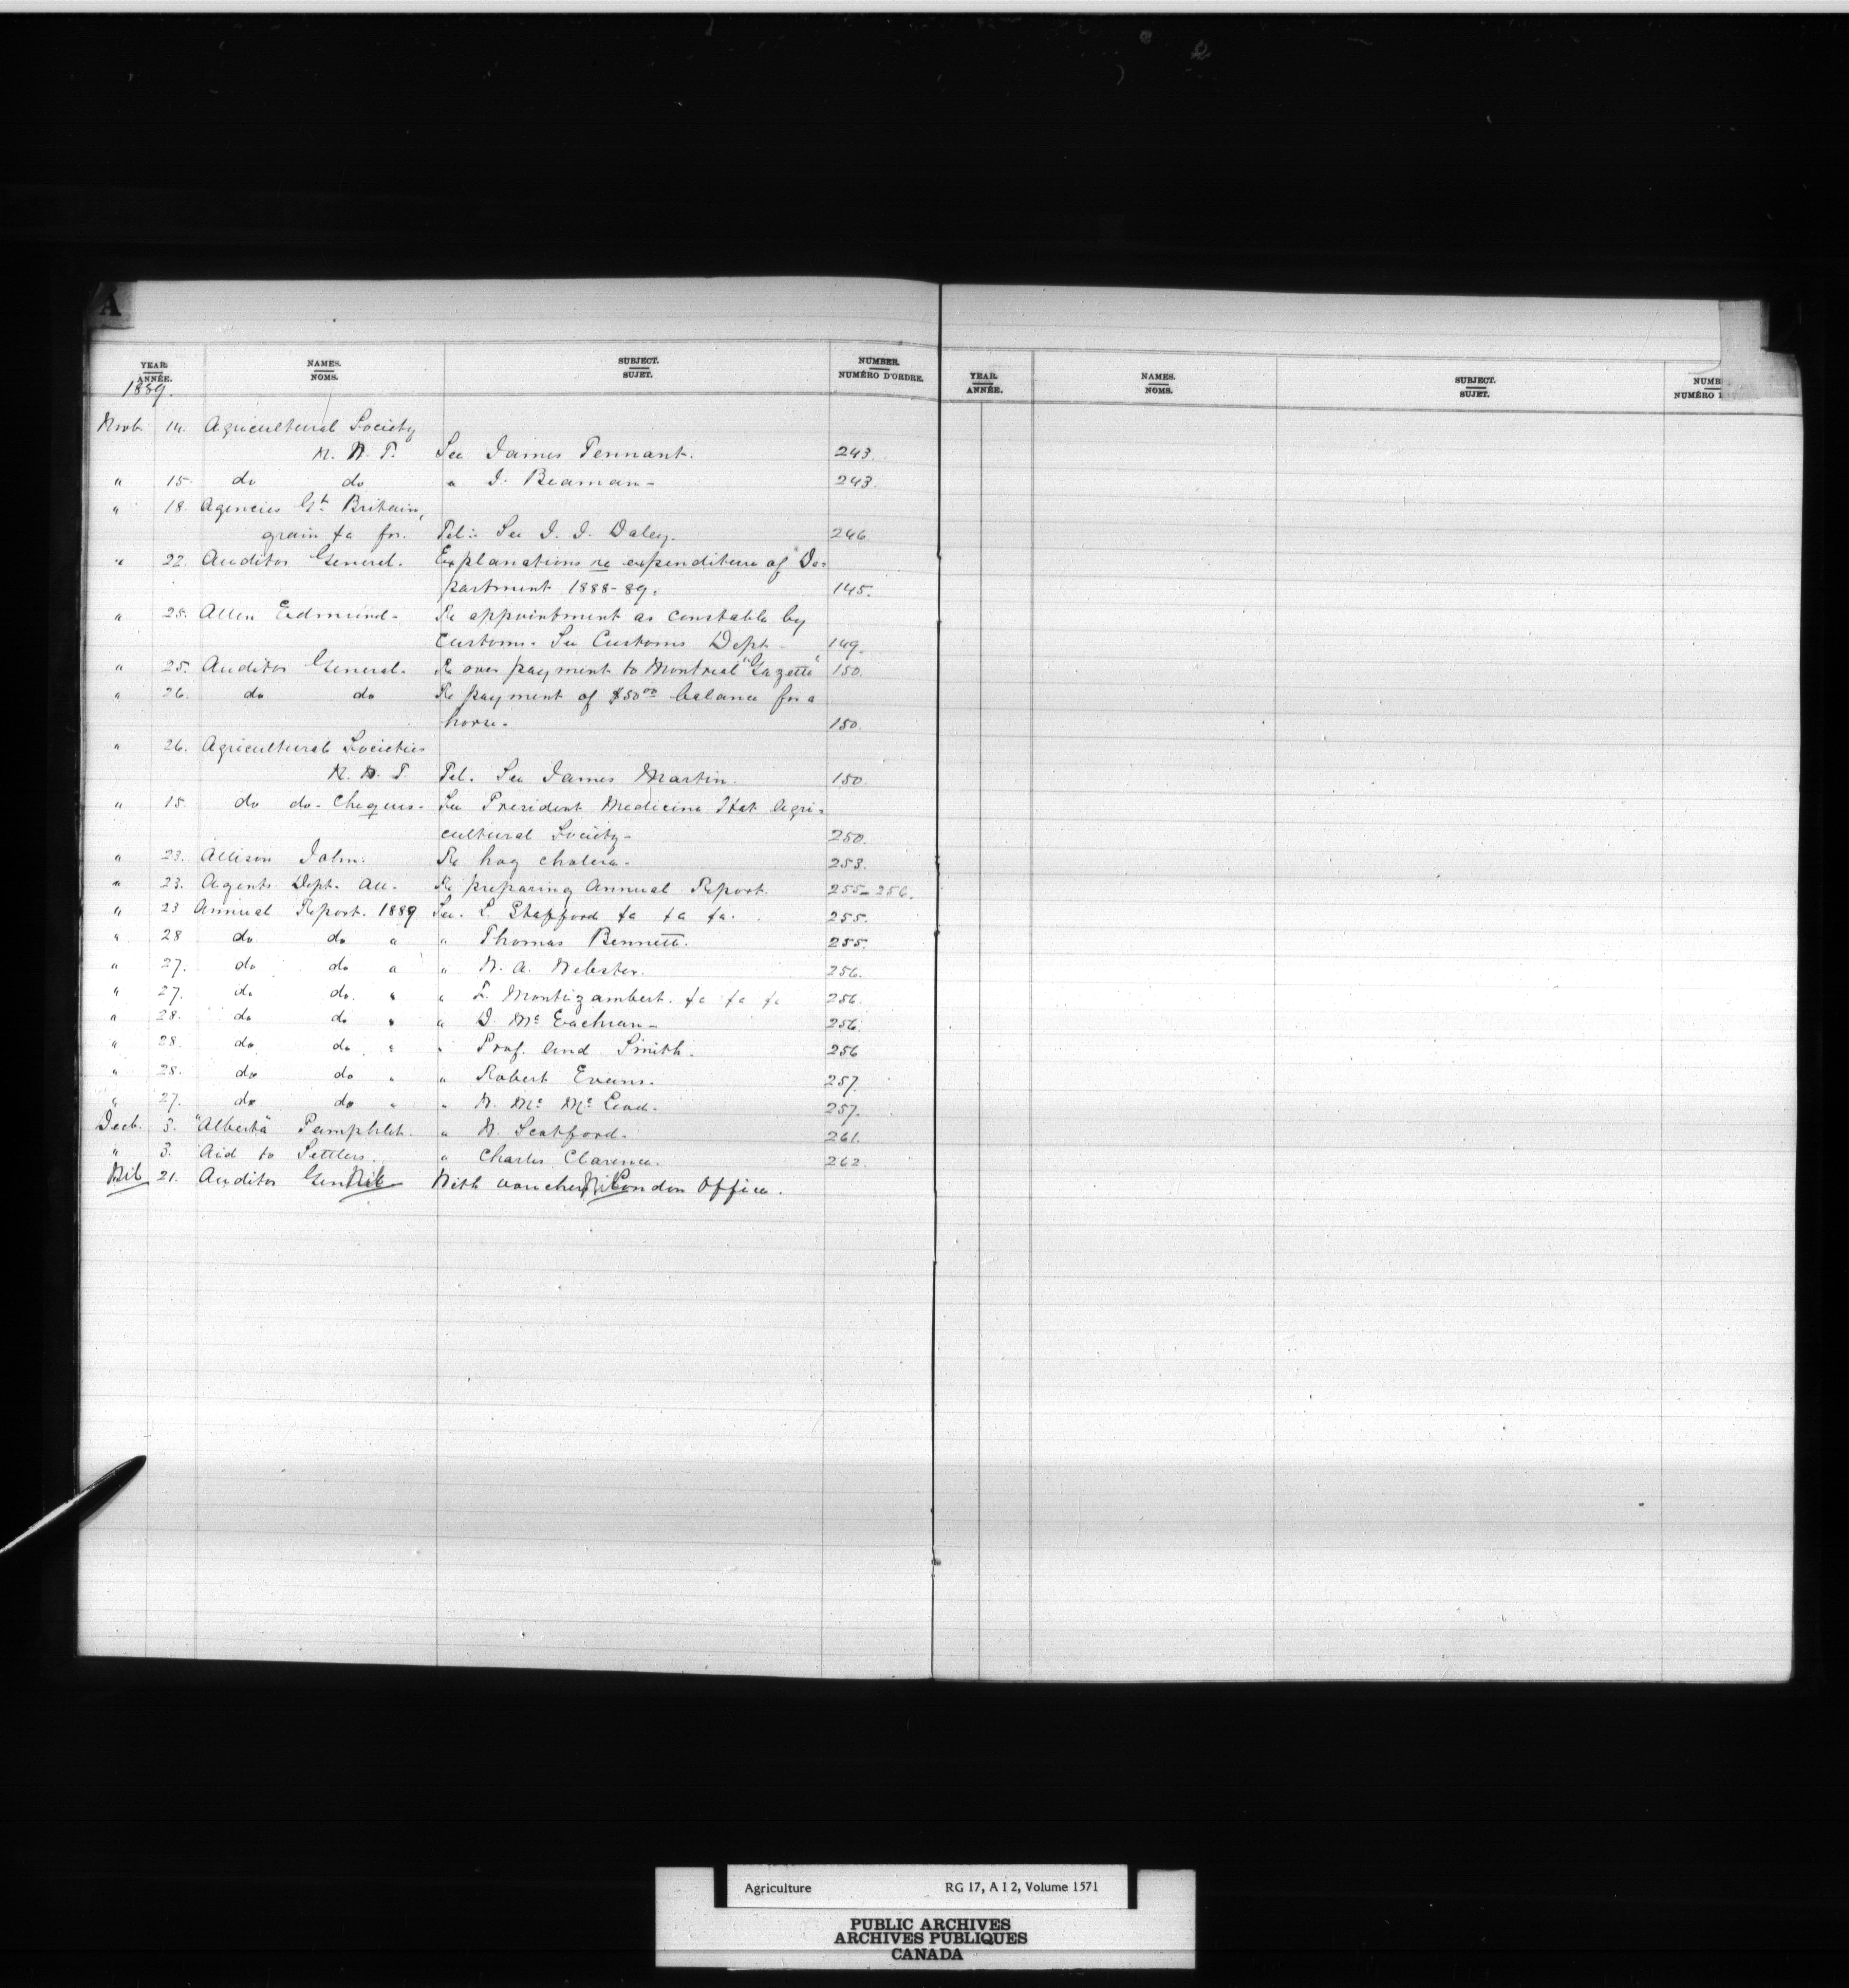 A
YEAR. NAMES. SUBJECT. NUMBER.
ANNÉE. NOMS. SUJET. NUMÉRO D'ORDRE.
1889.
Novb. 14. Agricultural Society
N. W. T. See James Tennant. 243.
" 15. do do " J. Beaman - 243.
" 18. Agencies Gt. Britain,
grain &c for. Tel: See J. J. Daley. 246
" 22. Auditor General. Explanations re expenditure of De-
partment 1888-89. 145.
" 25. Allen Edmund. Re appointment as constable by
Customs. See Customs Dept - 149.
" 25. Auditor General. Re over payment to Montreal "Gazette" 150.
" 26. do do Re payment of $50.00 balance for a
horse. 150.
" 26. Agricultural Societies
N. W. T. Tel. See James Martin. 150.
" 15. do do - Cheques. See President Medicine Hat Agri-
cultural Society - 250.
" 23. Allison John. Re hog cholera. 253.
" 23. Agents Dept. All. Re preparing Annual Report. 255-256.
" 23 Annual Report. 1889 See. L. Stafford &c &c &c. 255.
" 28 do do " " Thomas Bennett. 255.
" 27. do do " " W. A. Webster. 256.
" 27. do do. " " F. Montizambert. &c &c &c 256.
" 28. do do " " D. McEachran - 256.
" 28. do do " " Prof. And. Smith. 256
" 28. do do " " Robert Evans. 257.
" 27. do do " " W. Mc McLeod. 257.
Decb. 3. "Alberta" Pamphlet. " W. Scatford. 261.
" 3. Aid to Settlers. " Charles Clarence. 262.
21. Auditor Gen With vouchers London Office.
YEAR. NAMES. SUBJECT. NUMB
ANNÉE. NOMS. SUJET. NUMÉRO
Agriculture RG 17, A I 2, Volume 1571
PUBLIC ARCHIVES
ARCHIVES PUBLIQUES
CANADA